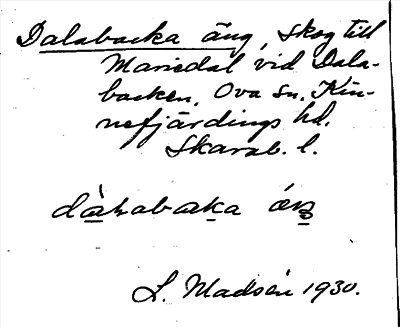 Dalabacka äng, skog till
Mariedal vid Dala-
backen, Ova sn, Kin-
nefjärdings hd.
Skarab. l.
L. Madsén 1930.